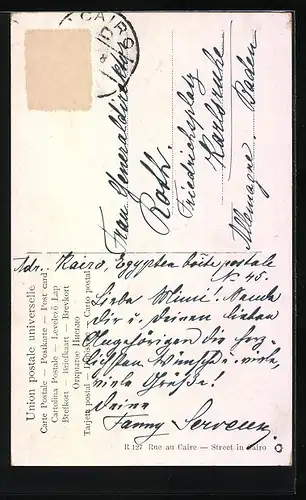 CAIRO
Frau Generaldirektor
Roth.
Friedrichsplatz
Karlsruhe
Allemagne. Baden
Union postale universelle
Carte Postale — Postkarte — Post card
Cartolina Postale — Levelező Lap
Brefkort — Briefkaart — Brevkort
Tarjeta postal —
Adr. Kairo, Egypten boîte postale
No. 45.
Liebe Mimi! Sende
Dir u. Deinen lieben
Angehörigen die herz-
lichsten Wünsche u. viele,
viele Grüße!
Deine
Fanny
R 127 Rue au Caire — Street in Cairo